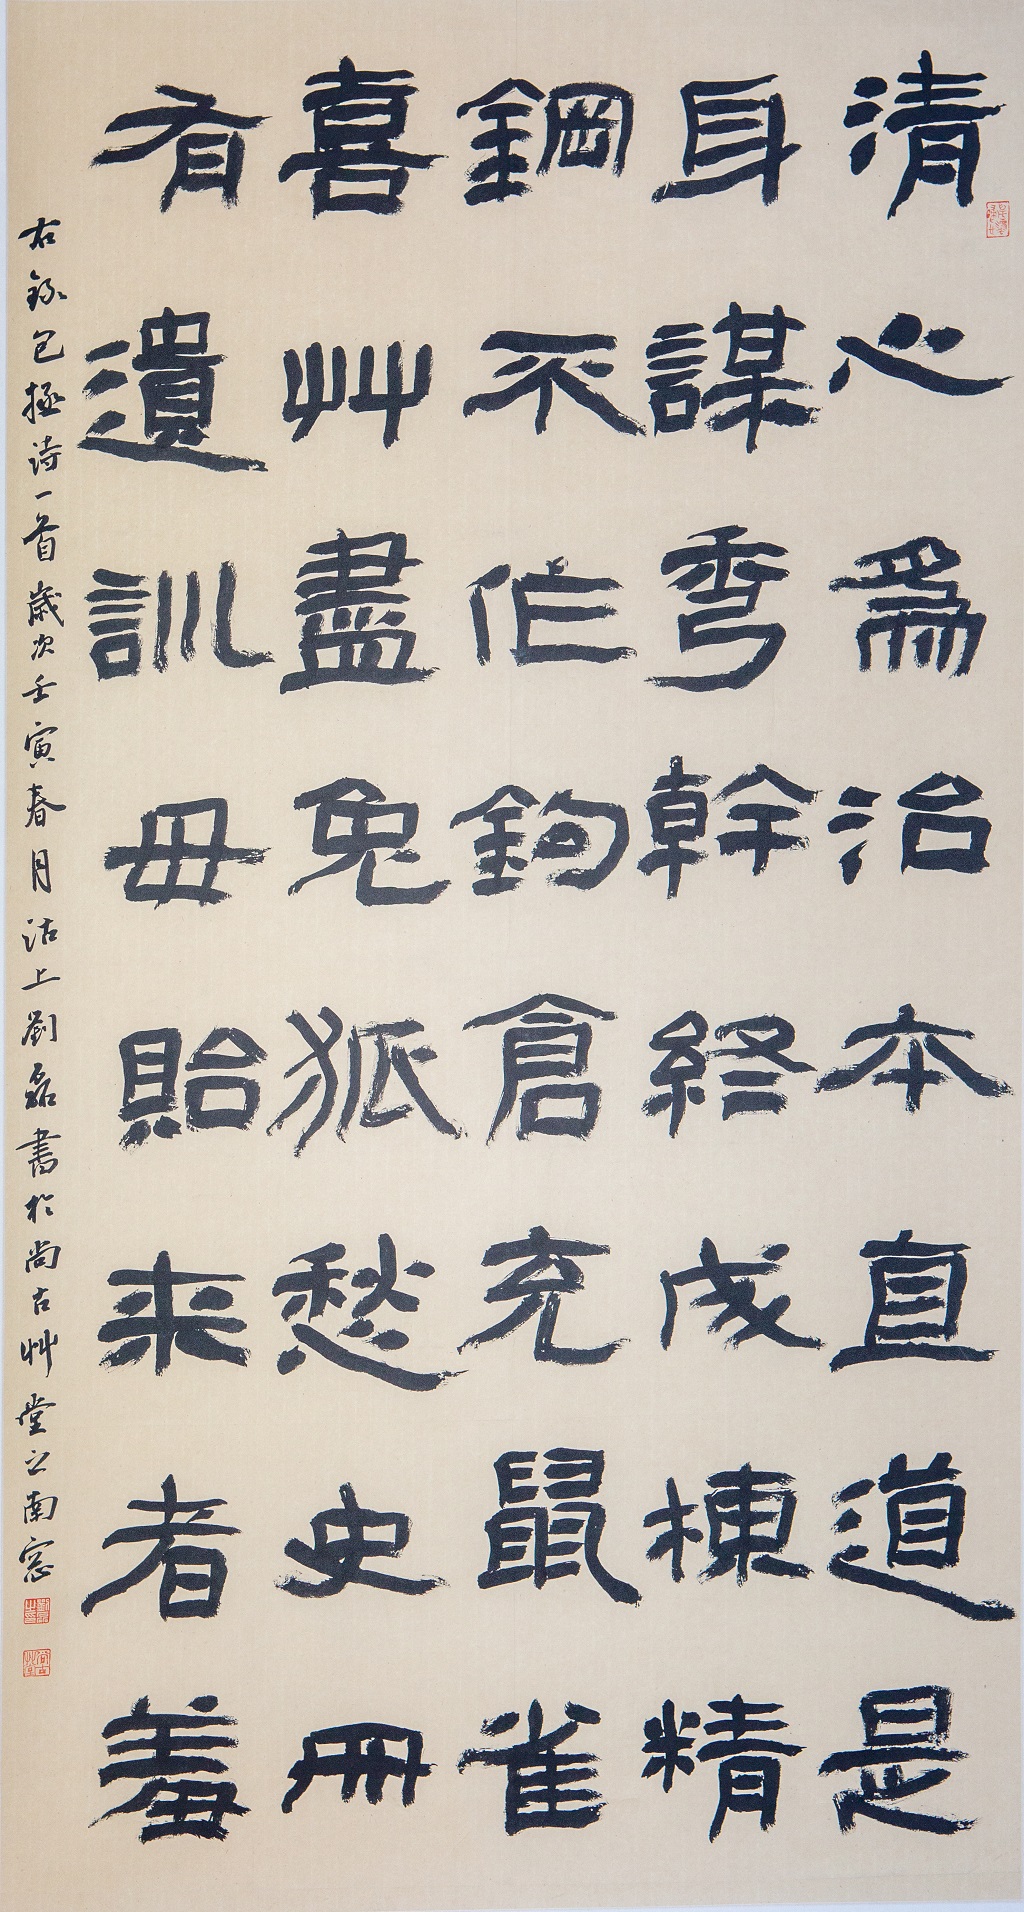 清心為治本直道是
身謀秀幹終成棟精
鋼不作鉤倉充鼠雀
喜艸盡兔狐愁史冊
有遺訓毋貽来者羞
右録包拯詩一首歲次壬寅春月沽上劉磊書於尚古艸堂之南窓